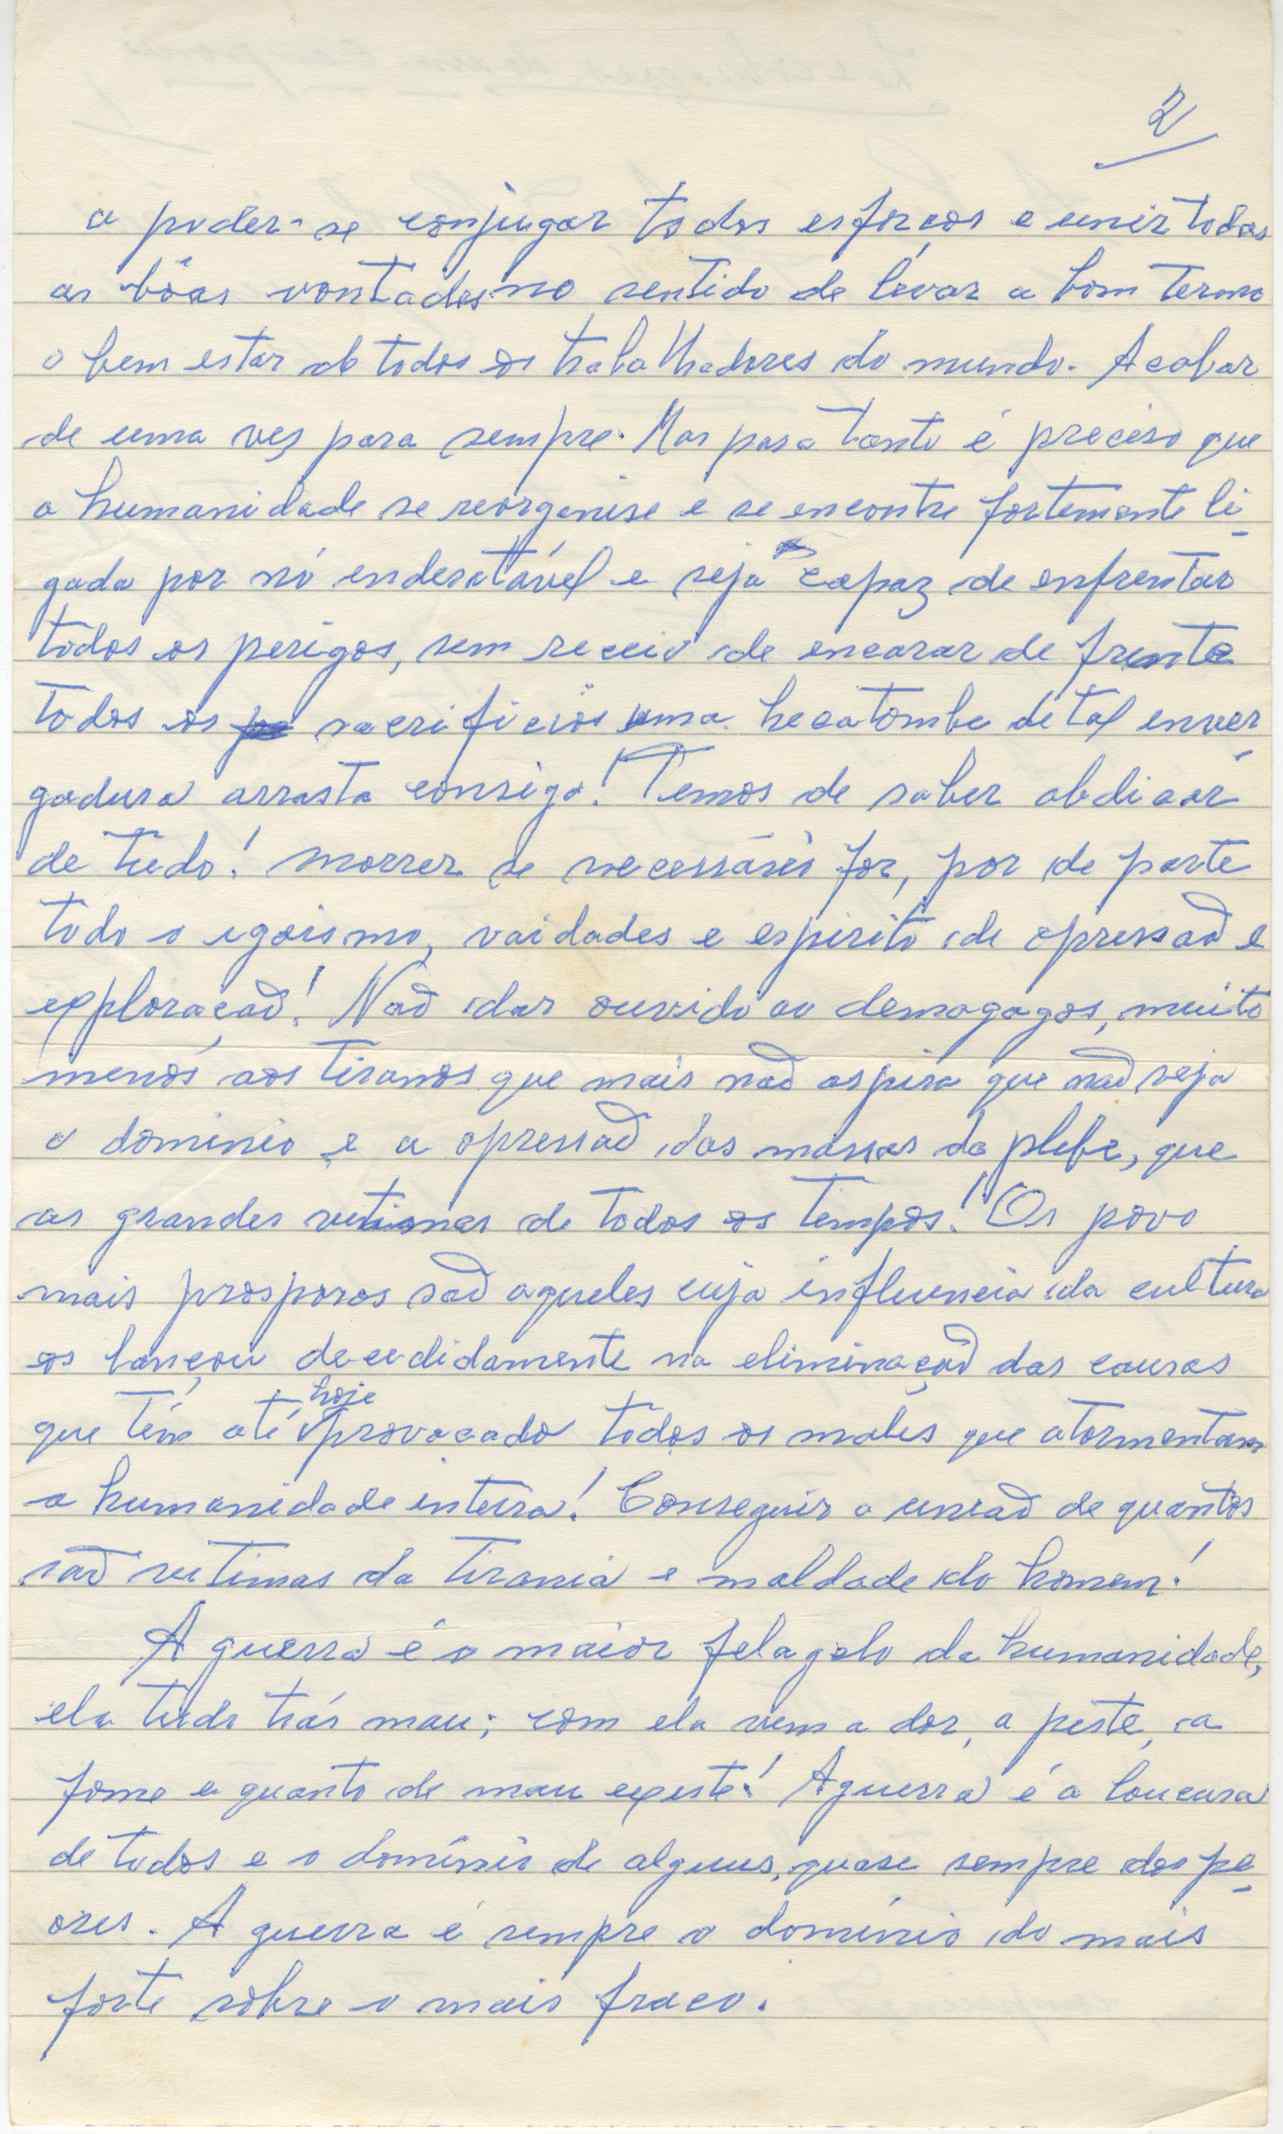 2
a poder-se conjugar todos esforços e unir todas
as bôas vontades no sentido de levar a bom termo
o bem estar de todos os trabalhadores do mundo. Acabar
de uma ves para sempre. Mas para tanto é preciso que
a humanidade se reorganise e se encontre fortemente li-
gada por nó indesatável e seja capaz de enfrentar
todos os perigos, sem receio de encarar de frente
todos os sacrificios uma hecatombe de tal enver-
gadura arrasta consigo! Temos de saber abdicar
de tudo! morrer se necessário for, por de parte
todo o egoismo, vaidades e espirito de opressaõ e
exploraçaõ! Naõ dar ouvido ao demagogos, muito
menos aos tiranos que mais naõ aspira que naõ seja
o dominio e a opressaõ das massas da plebe, que
as grandes vitimas de todos os tempos! Os povo
mais prosporos saõ aqueles cuja influencia da cultura
os lançou decedidamente na eliminaçaõ das causas
que têm até hoje provocado todos os males que atormentam
a humanidade inteira! Conseguir a uniaõ de quantos
saõ vitimas da tirania e maldade do homem!
A guerra é o maior felagelo da humanidade,
ela tudo trás mau; com ela vem a dor, a peste, a
fome e quanto de mau existe! A guerra é a loucura
de todos e o domínio de alguns, quase sempre dos pe-
ores. A guerra é sempre o domínio do mais
forte sobre o mais fraco.